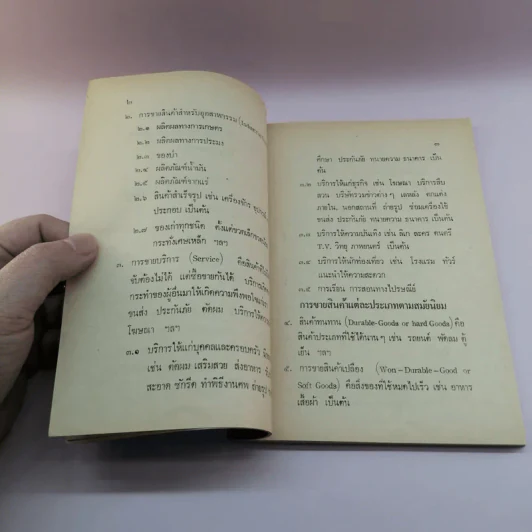 ๒
๒. การขายสินค้าสำหรับอุตสาหกรรม
๒.๑ ผลิตผลทางการเกษตร
๒.๒ ผลิตผลทางการประมง
๒.๓ ของป่า
๒.๔ ผลิตภัณฑ์น้ำมัน
๒.๕ ผลิตภัณฑ์จากแร่
๒.๖ สินค้าสำเร็จรูป เช่น เครื่องจักร
ประกอบ เป็นต้น
๒.๗ ของเก่าทุกชนิด ตั้งแต่ขวดเล็กขวดน้อย
กระทั่งเศษเหล็ก ฯลฯ
๓. การขายบริการ (Service) คือสินค้าที่
จับต้องไม่ได้ แต่ซื้อขายกันได้ บริการ
กระทำของผู้อื่นมาให้เกิดความพึงพอใจ
ขนส่ง ประกันภัย ตัดผม บริการ
โฆษณา ฯลฯ
๓.๑ บริการให้แก่บุคคลและครอบครัว
เช่น ตัดผม เสริมสวย ส่งอาหาร
สะอาด ซักรีด ทำพิธีงานศพ ถ่ายรูป
๓
ศึกษา ประกันภัย ทนายความ ธนาคาร เป็น
ต้น
๓.๒ บริการให้แก่ธุรกิจ เช่น โฆษณา บริการสืบ
สวน บริษัทรวมข่าวต่างๆ, เลหลัง ตกแต่ง
ภายใน, นอกสถานที่ ถ่ายรูป ซ่อมเครื่องใช้
ขนส่ง ประกันภัย ทนายความ ธนาคาร เป็นต้น
๓.๓ บริการให้ความบันเทิง เช่น ลิเก ละคร ดนตรี
T.V. วิทยุ ภาพยนตร์ เป็นต้น
๓.๔ บริการให้นักท่องเที่ยว เช่น โรงแรม ทัวร์
แนะนำให้ความสะดวก
๓.๕ การเรียน การสอนทางไปรษณีย์
การขายสินค้าแต่ละประเภทตามสมัยนิยม
๔. สินค้าทนทาน (Durable-Goods or hard Goods) คือ
สินค้าประเภทที่ใช้ได้นานๆ เช่น รถยนต์ พัดลม ตู้
เย็น ฯลฯ
๕. การขายสินค้าเปลือง (Won-Durable-Good or
Soft Goods) คือสิ่งของที่ใช้หมดไปเร็ว เช่น อาหาร
เสื้อผ้า เป็นต้น